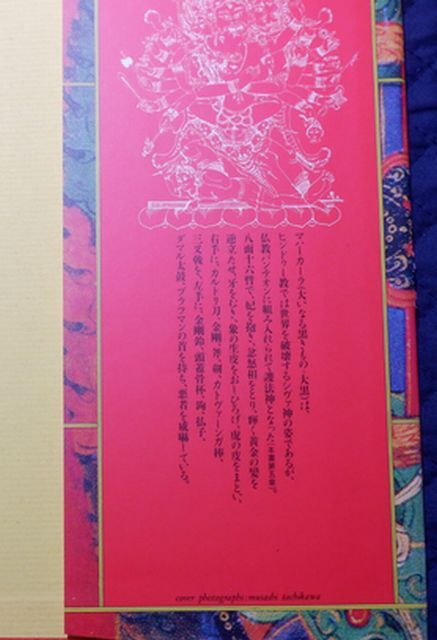 マハーカーラ(大いなる黒きもの・大黒)は、
ヒンドゥー教では世界を破壊するシヴァ神の姿であるが、
仏教パンテオンに組み入れられて護法神となった[本書第五章]。
八面十六臂で、妃を抱き、忿怒相をとり、輝く黄金の髪を
逆立たせ、牙をむき、象の生皮をおーひろげ、虎の皮をまとい、
右手に、カルトリ刀、金剛、斧、剣、カトヴァーンガ棒、
三叉戟を、左手に、金剛鈴、頭蓋骨杯、鉤、払子、
ダマル太鼓、ブラフマンの首を持ち、悪者を威嚇している。
cover photographs:musashi tachikawa